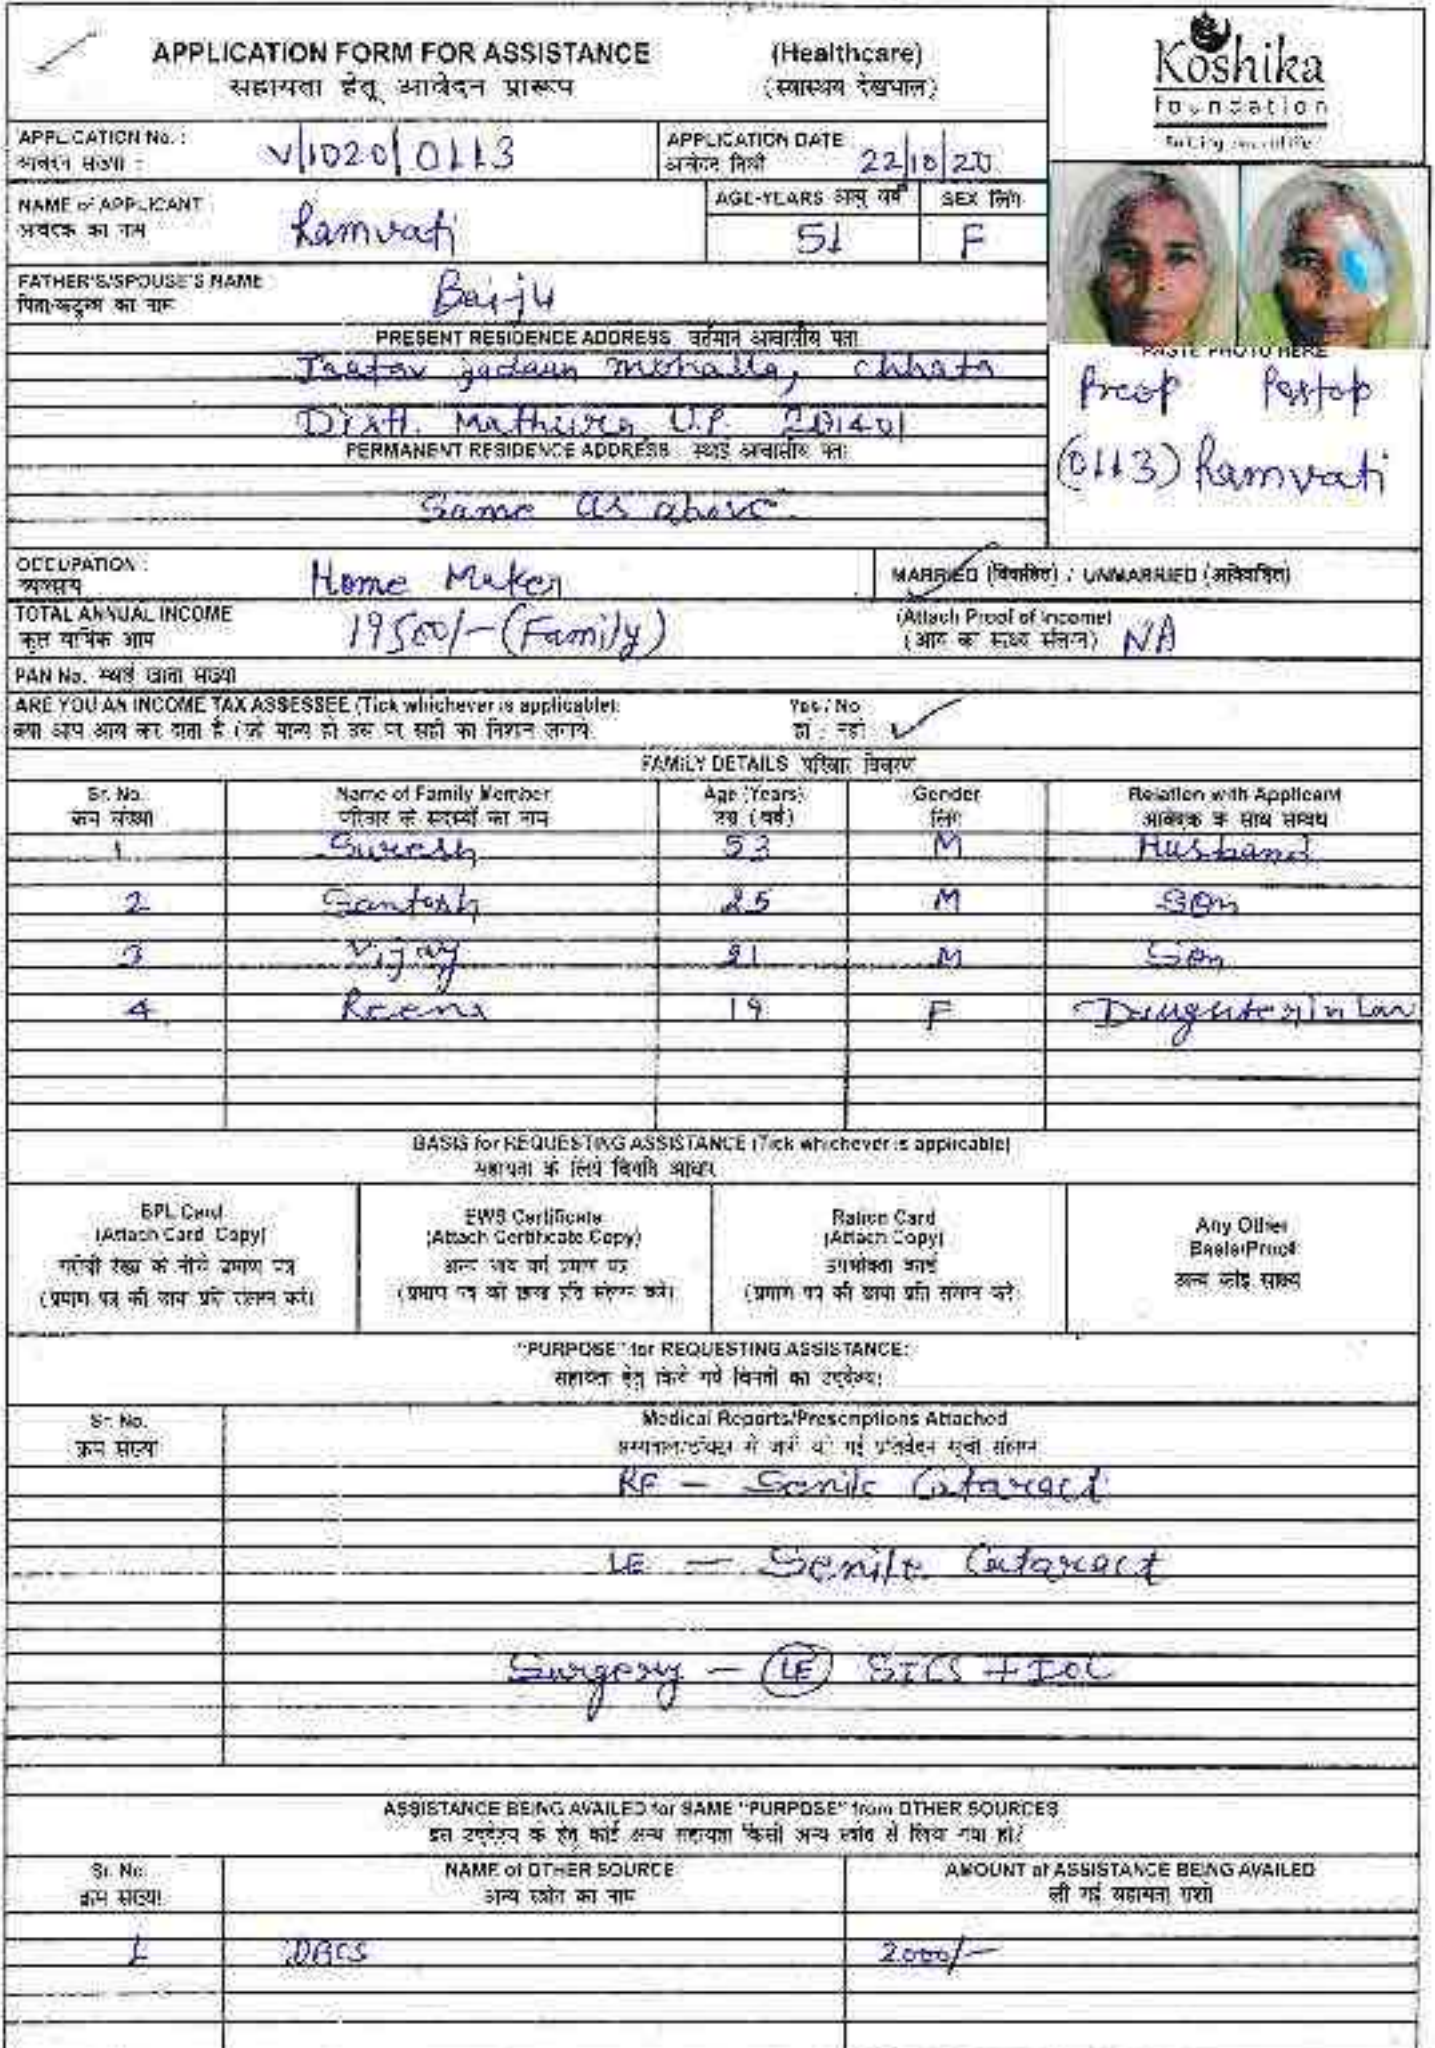 APPLICATION FORM FOR ASSISTANCE (Healthcare)
सहायता हेतू आवेदन प्रारूप (स्वास्थय देखभाल)
Koshika
foundation
APPLICATION No. : V/1020/0113
आवेदन संख्या :
APPLICATION DATE 22/10/20
आवेदन तिथी
NAME of APPLICANT Ramvati
आवेदक का नाम
AGE-YEARS आयु वर्ष 51
SEX लिंग F
FATHER'S/SPOUSE'S NAME Baiju
पिता/कटुम्ब का नाम
PRESENT RESIDENCE ADDRESS वर्तमान आवासीय पता
Jaatav jadaun mohalla, chhata
Distt. Mathura U.P. 281401
PERMANENT RESIDENCE ADDRESS स्थाई आवासीय पता
Same as above
PASTE PHOTO HERE
Preop Postop
(0113) Ramvati
OCCUPATION : Home Maker
व्यवसाय
MARRIED (विवाहित) / UNMARRIED (अविवाहित)
TOTAL ANNUAL INCOME 19500/- (Family)
कुल वार्षिक आय
(Attach Proof of Income) NA
(आय का साक्ष्य संलग्न)
PAN No. स्थाई खाता संख्या
ARE YOU AN INCOME TAX ASSESSEE (Tick whichever is applicable): Yes / No
क्या आप आय कर दाता है (जो मान्य हो उस पर सही का निशान लगाये हां / नहीं
FAMILY DETAILS परिवार विवरण
Sr. No. Name of Family Member Age (Years) Gender Relation with Applicant
क्रम संख्या परिवार के सदस्यों का नाम उम्र (वर्ष) लिंग आवेदक के साथ सम्बंध
1 Suresh 53 M Husband
2 Santosh 25 M Son
3 Vijay 21 M Son
4 Reena 19 F Daughter in Law
BASIS for REQUESTING ASSISTANCE (Tick whichever is applicable)
सहायता के लिये विनति आधार
BPL Card
(Attach Card Copy)
गरीबी रेखा के नीचे प्रमाण पत्र
(प्रमाण पत्र की छाया प्रति संलग्न करें)
EWS Certificate
(Attach Certificate Copy)
अल्प आय वर्ग प्रमाण पत्र
(प्रमाण पत्र की छाया प्रति संलग्न करें)
Ration Card
(Attach Copy)
उपभोक्ता कार्ड
(प्रमाण पत्र की छाया प्रति संलग्न करें)
Any Other
Basis/Proof
अन्य कोई साक्ष्य
"PURPOSE" for REQUESTING ASSISTANCE:
सहायता हेतु किये गये विनती का उद्देश्य:
Sr. No. Medical Reports/Prescriptions Attached
क्रम संख्या अस्पताल/डॉक्टर से जारी की गई प्रतिवेदन सूची संलग्न
RE - Senile Cataract
LE - Senile Cataract
Surgery - LE SICS + IOL
ASSISTANCE BEING AVAILED for SAME "PURPOSE" from OTHER SOURCES
इस उद्देश्य के हेतु कोई अन्य सहायता किसी अन्य स्त्रोत से लिया गया हो?
Sr. No. NAME of OTHER SOURCE AMOUNT of ASSISTANCE BEING AVAILED
क्रम संख्या अन्य स्त्रोत का नाम ली गई सहायता राशी
1 DBCS 2000/-